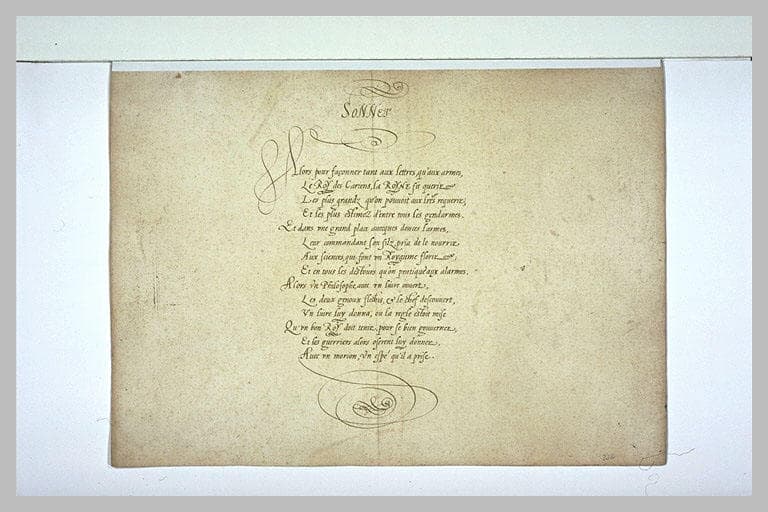 SONNET
Alors pour façonner tant aux lettres qu'aux armes,
Le ROY des Cariens, la ROYNE fit querir
Les plus grandz qu'on pouvoit aux lettres requerir,
Et les plus estimez d'entre tous les gendarmes.
Et dans une grand place avecques douces larmes,
Leur commandant son filz, pria de le nourrir
Aux sciences, qui font un Royaume florir,
Et en tous les destours qu'on pratique aux alarmes.
Alors un Philosophe avec un livre ouvert,
Les deux genoux flechis, & le chef descouvert,
Un livre luy donna, ou la regle estoit mise
Qu'un bon ROY doit tenir, pour se bien gouverner,
Et les guerriers alors oserent luy donner
Avec un morion, un espé qu'il a prise.